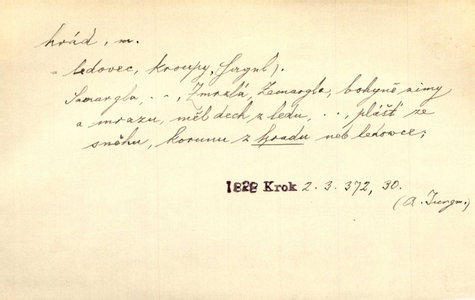 hrád, m.
= ledovec, kroupy,
Samargla, . . , Zmrzlá, Zamargla, bohyně zimy
a mrazu, měl dech z ledu, . . , plášť ze
sněhu, korunu z hradu neb ledowce;
1828 Krok 2. 3. 372, 30.
(A. Jungm.)